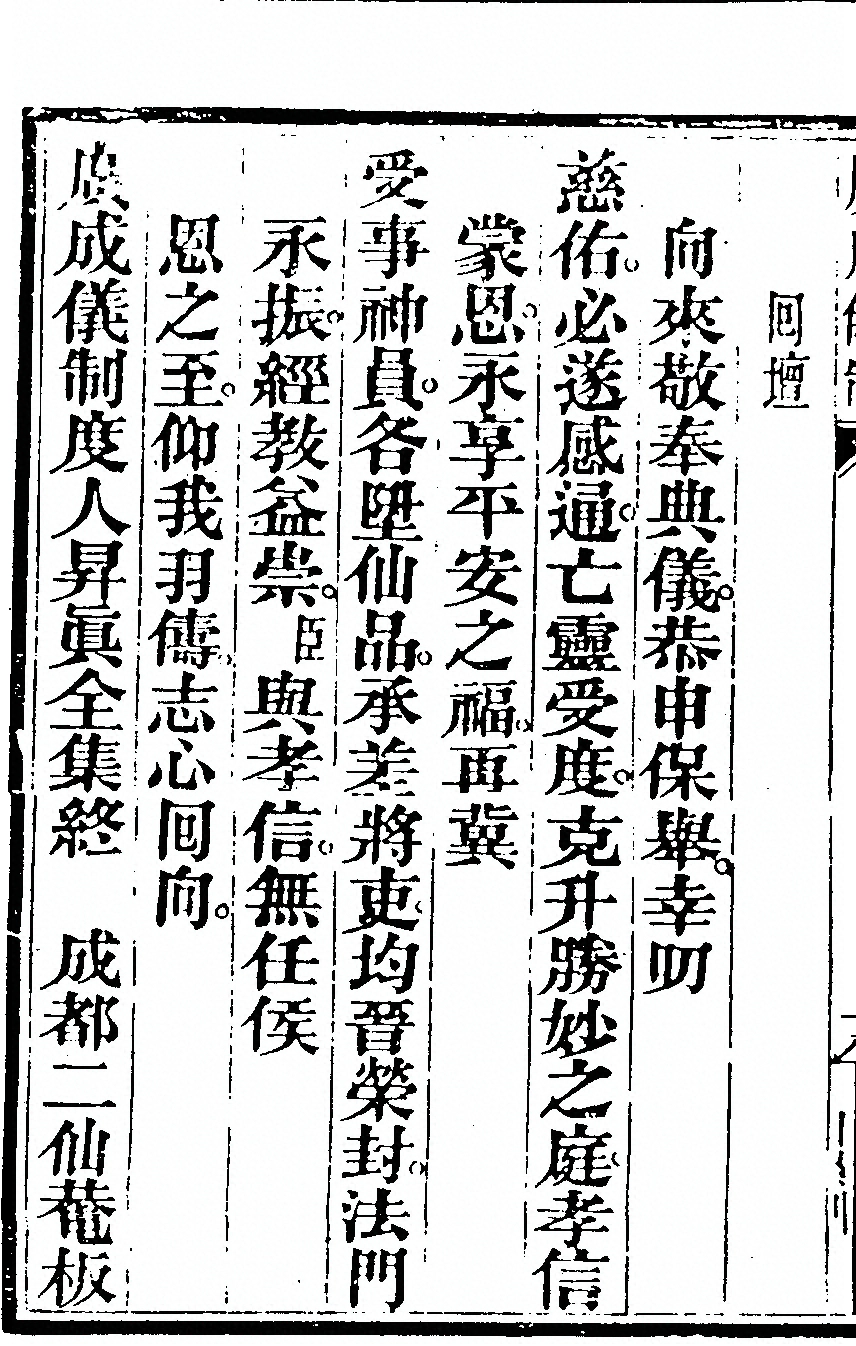 回壇
向來敬奉典儀。恭申保舉。幸叨
慈佑。必遂感通。亡靈受度。克升勝妙之庭。孝信
蒙恩。永享平安之福。再冀
受事神員。各陞仙品。承差將吏。均晉榮封。法門
永振。經教益崇。臣與孝信。無任俟
恩之至。仰我羽儔。志心回向。
廣成儀制度人昇眞全集終　成都二仙菴板